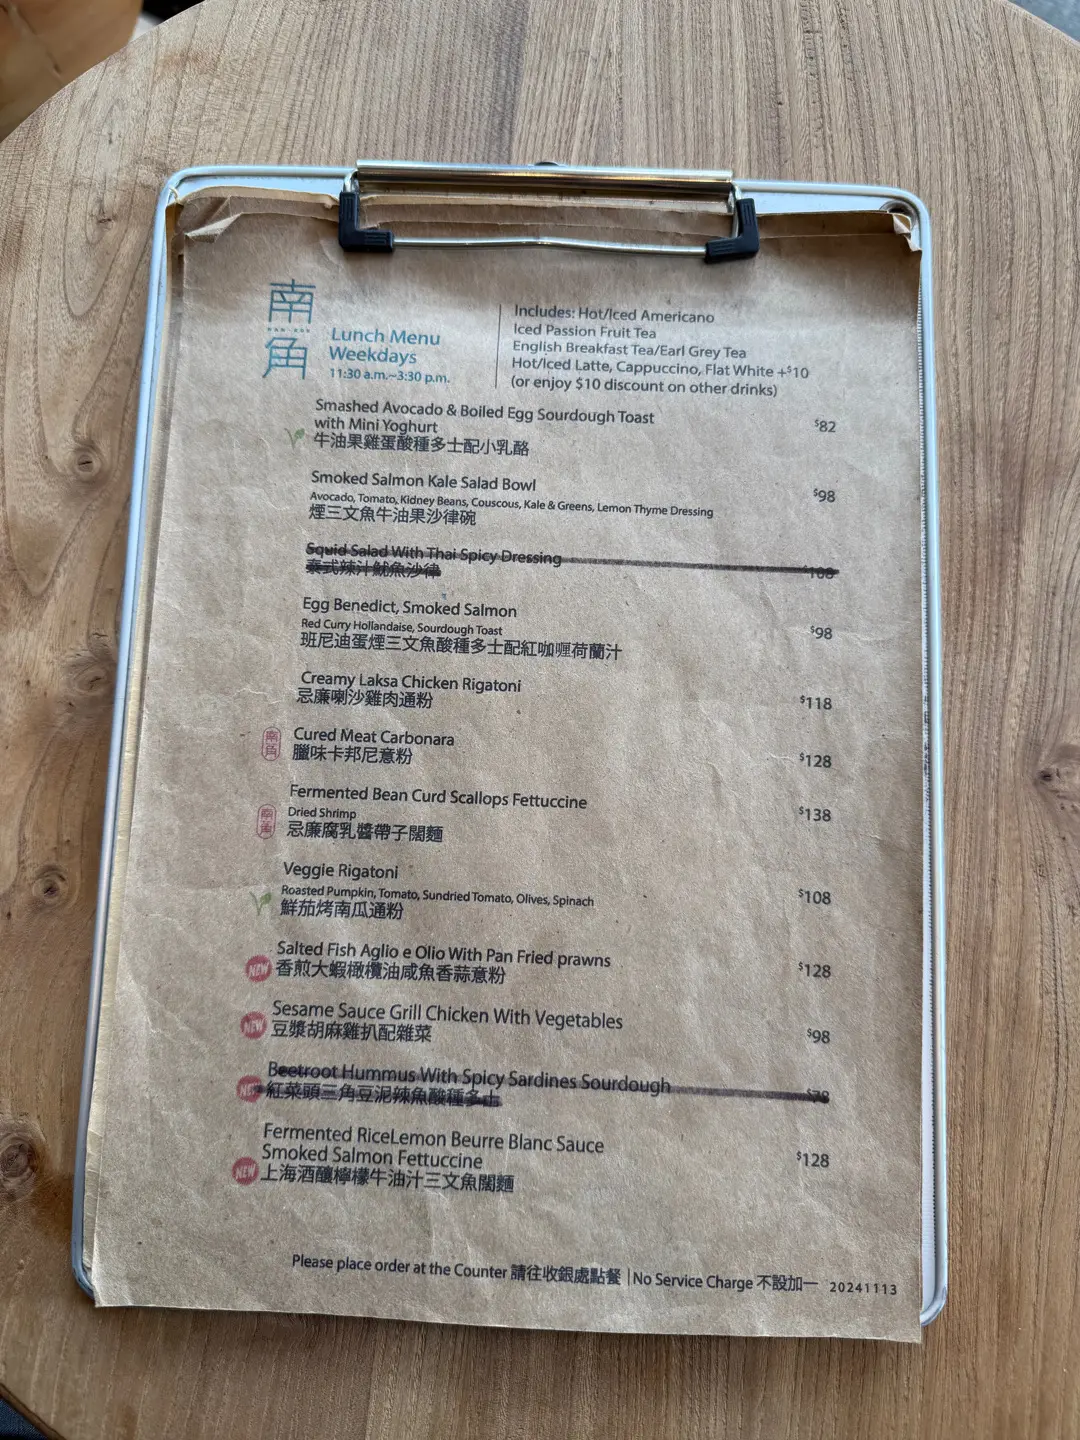 南
NAM KOK
角
Lunch Menu
Weekdays
11:30 a.m.~3:30 p.m.
Includes: Hot/Iced Americano
Iced Passion Fruit Tea
English Breakfast Tea/Earl Grey Tea
Hot/Iced Latte, Cappuccino, Flat White +$10
(or enjoy $10 discount on other drinks)
Smashed Avocado & Boiled Egg Sourdough Toast
with Mini Yoghurt
$82
牛油果雞蛋酸種多士配小乳酪
Smoked Salmon Kale Salad Bowl
$98
Avocado, Tomato, Kidney Beans, Couscous, Kale & Greens, Lemon Thyme Dressing
煙三文魚牛油果沙律碗
Squid Salad With Thai Spicy Dressing
$108
泰式辣汁魷魚沙律
Egg Benedict, Smoked Salmon
Red Curry Hollandaise, Sourdough Toast
$98
班尼迪蛋煙三文魚酸種多士配紅咖喱荷蘭汁
Creamy Laksa Chicken Rigatoni
忌廉喇沙雞肉通粉
$118
南角
Cured Meat Carbonara
臘味卡邦尼意粉
$128
Fermented Bean Curd Scallops Fettuccine
$138
南角
Dried Shrimp
忌廉腐乳醬帶子闊麵
Veggie Rigatoni
Roasted Pumpkin, Tomato, Sundried Tomato, Olives, Spinach
$108
鮮茄烤南瓜通粉
Salted Fish Aglio e Olio With Pan Fried prawns
$128
NEW
香煎大蝦橄欖油咸魚香蒜意粉
Sesame Sauce Grill Chicken With Vegetables
$98
NEW
豆漿胡麻雞扒配雜菜
Beetroot Hummus With Spicy Sardines Sourdough
$78
NEW
紅菜頭三角豆泥辣魚酸種多士
Fermented RiceLemon Beurre Blanc Sauce
Smoked Salmon Fettuccine
$128
NEW
上海酒釀檸檬牛油汁三文魚闊麵
Please place order at the Counter 請往收銀處點餐 | No Service Charge 不設加一 20241113